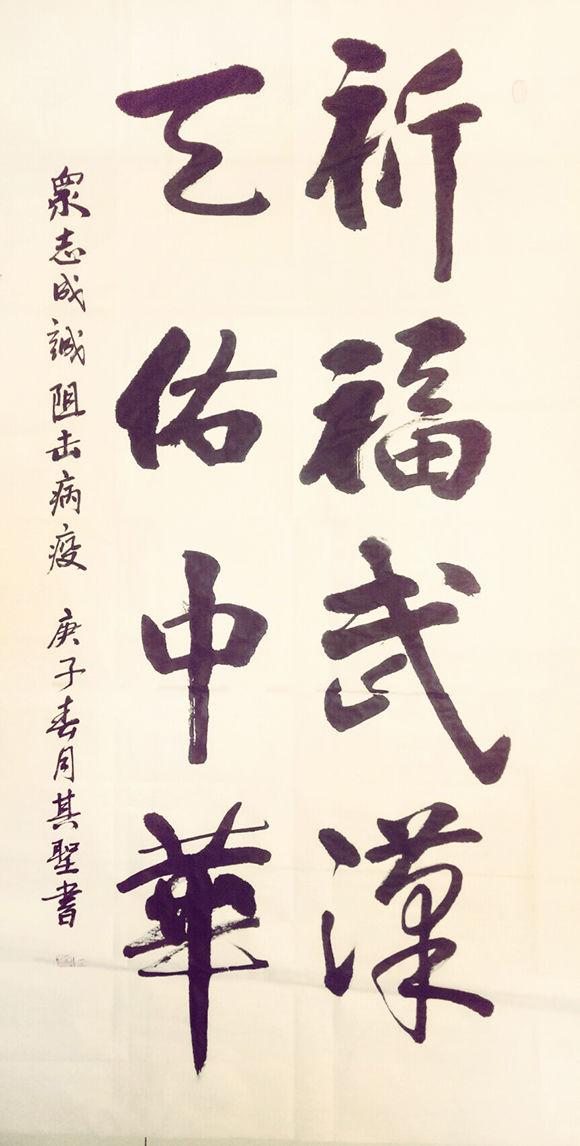 祈福武漢
天佑中華
衆志成誠阻击病疫 庚子春月其聖書